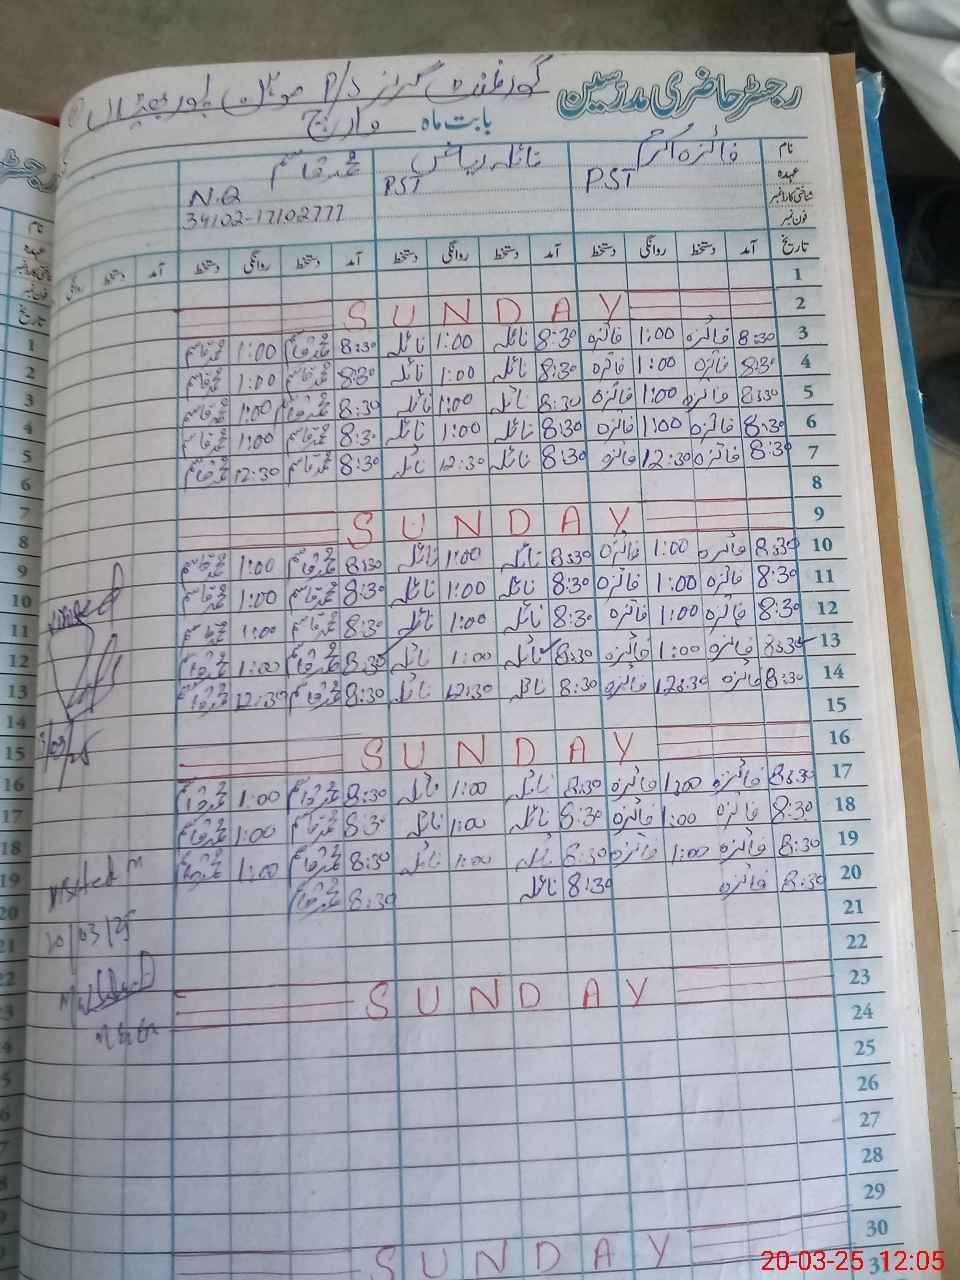 رجسٹر حاضری مدرسین
گورنمنٹ گرلز P/S
بابت ماہ مارچ
نام فائزہ اکرم نائلہ ریاض محمد قاسم
عہدہ PST PST N.Q
شناختی کارڈ نمبر 34102-17102777
فون نمبر
تاریخ آمد دستخط روانگی دستخط آمد دستخط روانگی دستخط آمد دستخط روانگی دستخط آمد دستخط روانگی
1
2 SUNDAY
3 8:30 فائزہ 1:00 فائزہ 8:30 نائلہ 1:00 نائلہ 8:30 محمد قاسم 1:00 محمد قاسم
4 8:30 فائزہ 1:00 فائزہ 8:30 نائلہ 1:00 نائلہ 8:30 محمد قاسم 1:00 محمد قاسم
5 8:30 فائزہ 1:00 فائزہ 8:30 نائلہ 1:00 نائلہ 8:30 محمد قاسم 1:00 محمد قاسم
6 8:30 فائزہ 1:00 فائزہ 8:30 نائلہ 1:00 نائلہ 8:30 محمد قاسم 1:00 محمد قاسم
7 8:30 فائزہ 12:30 فائزہ 8:30 نائلہ 12:30 نائلہ 8:30 محمد قاسم 12:30 محمد قاسم
8
9 SUNDAY
10 8:30 فائزہ 1:00 فائزہ 8:30 نائلہ 1:00 نائلہ 8:30 محمد قاسم 1:00 محمد قاسم
11 8:30 فائزہ 1:00 فائزہ 8:30 نائلہ 1:00 نائلہ 8:30 محمد قاسم 1:00 محمد قاسم
12 8:30 فائزہ 1:00 فائزہ 8:30 نائلہ 1:00 نائلہ 8:30 محمد قاسم 1:00 محمد قاسم
13 8:30 فائزہ 1:00 فائزہ 8:30 نائلہ 1:00 نائلہ 8:30 محمد قاسم 1:00 محمد قاسم
14 8:30 فائزہ 12:30 فائزہ 8:30 نائلہ 12:30 نائلہ 8:30 محمد قاسم 12:30 محمد قاسم
15
16 SUNDAY
17 8:30 فائزہ 1:00 فائزہ 8:30 نائلہ 1:00 نائلہ 8:30 محمد قاسم 1:00 محمد قاسم
18 8:30 فائزہ 1:00 فائزہ 8:30 نائلہ 1:00 نائلہ 8:30 محمد قاسم 1:00 محمد قاسم
19 8:30 فائزہ 1:00 فائزہ 8:30 نائلہ 1:00 نائلہ 8:30 محمد قاسم 1:00 محمد قاسم
20 8:30 فائزہ 8:30 نائلہ 8:30 محمد قاسم
21
22
23 SUNDAY
24
25
26
27
28
29
30 SUNDAY
31
visited
visited
20/03/25
20-03-25 12:05